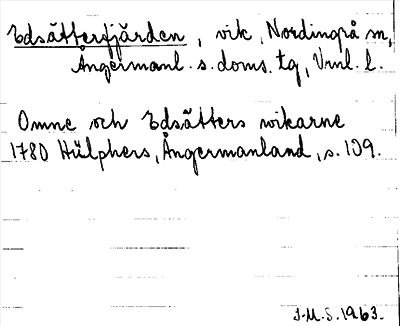 Edsätterfjärden, vik, Nordingrå sn,
Ångermanl. s. doms. tg, Vrnl. l.
Omne och Edsätters wikarne
1780 Hülphers, Ångermanland, s. 109.
J.M.S. 1963.